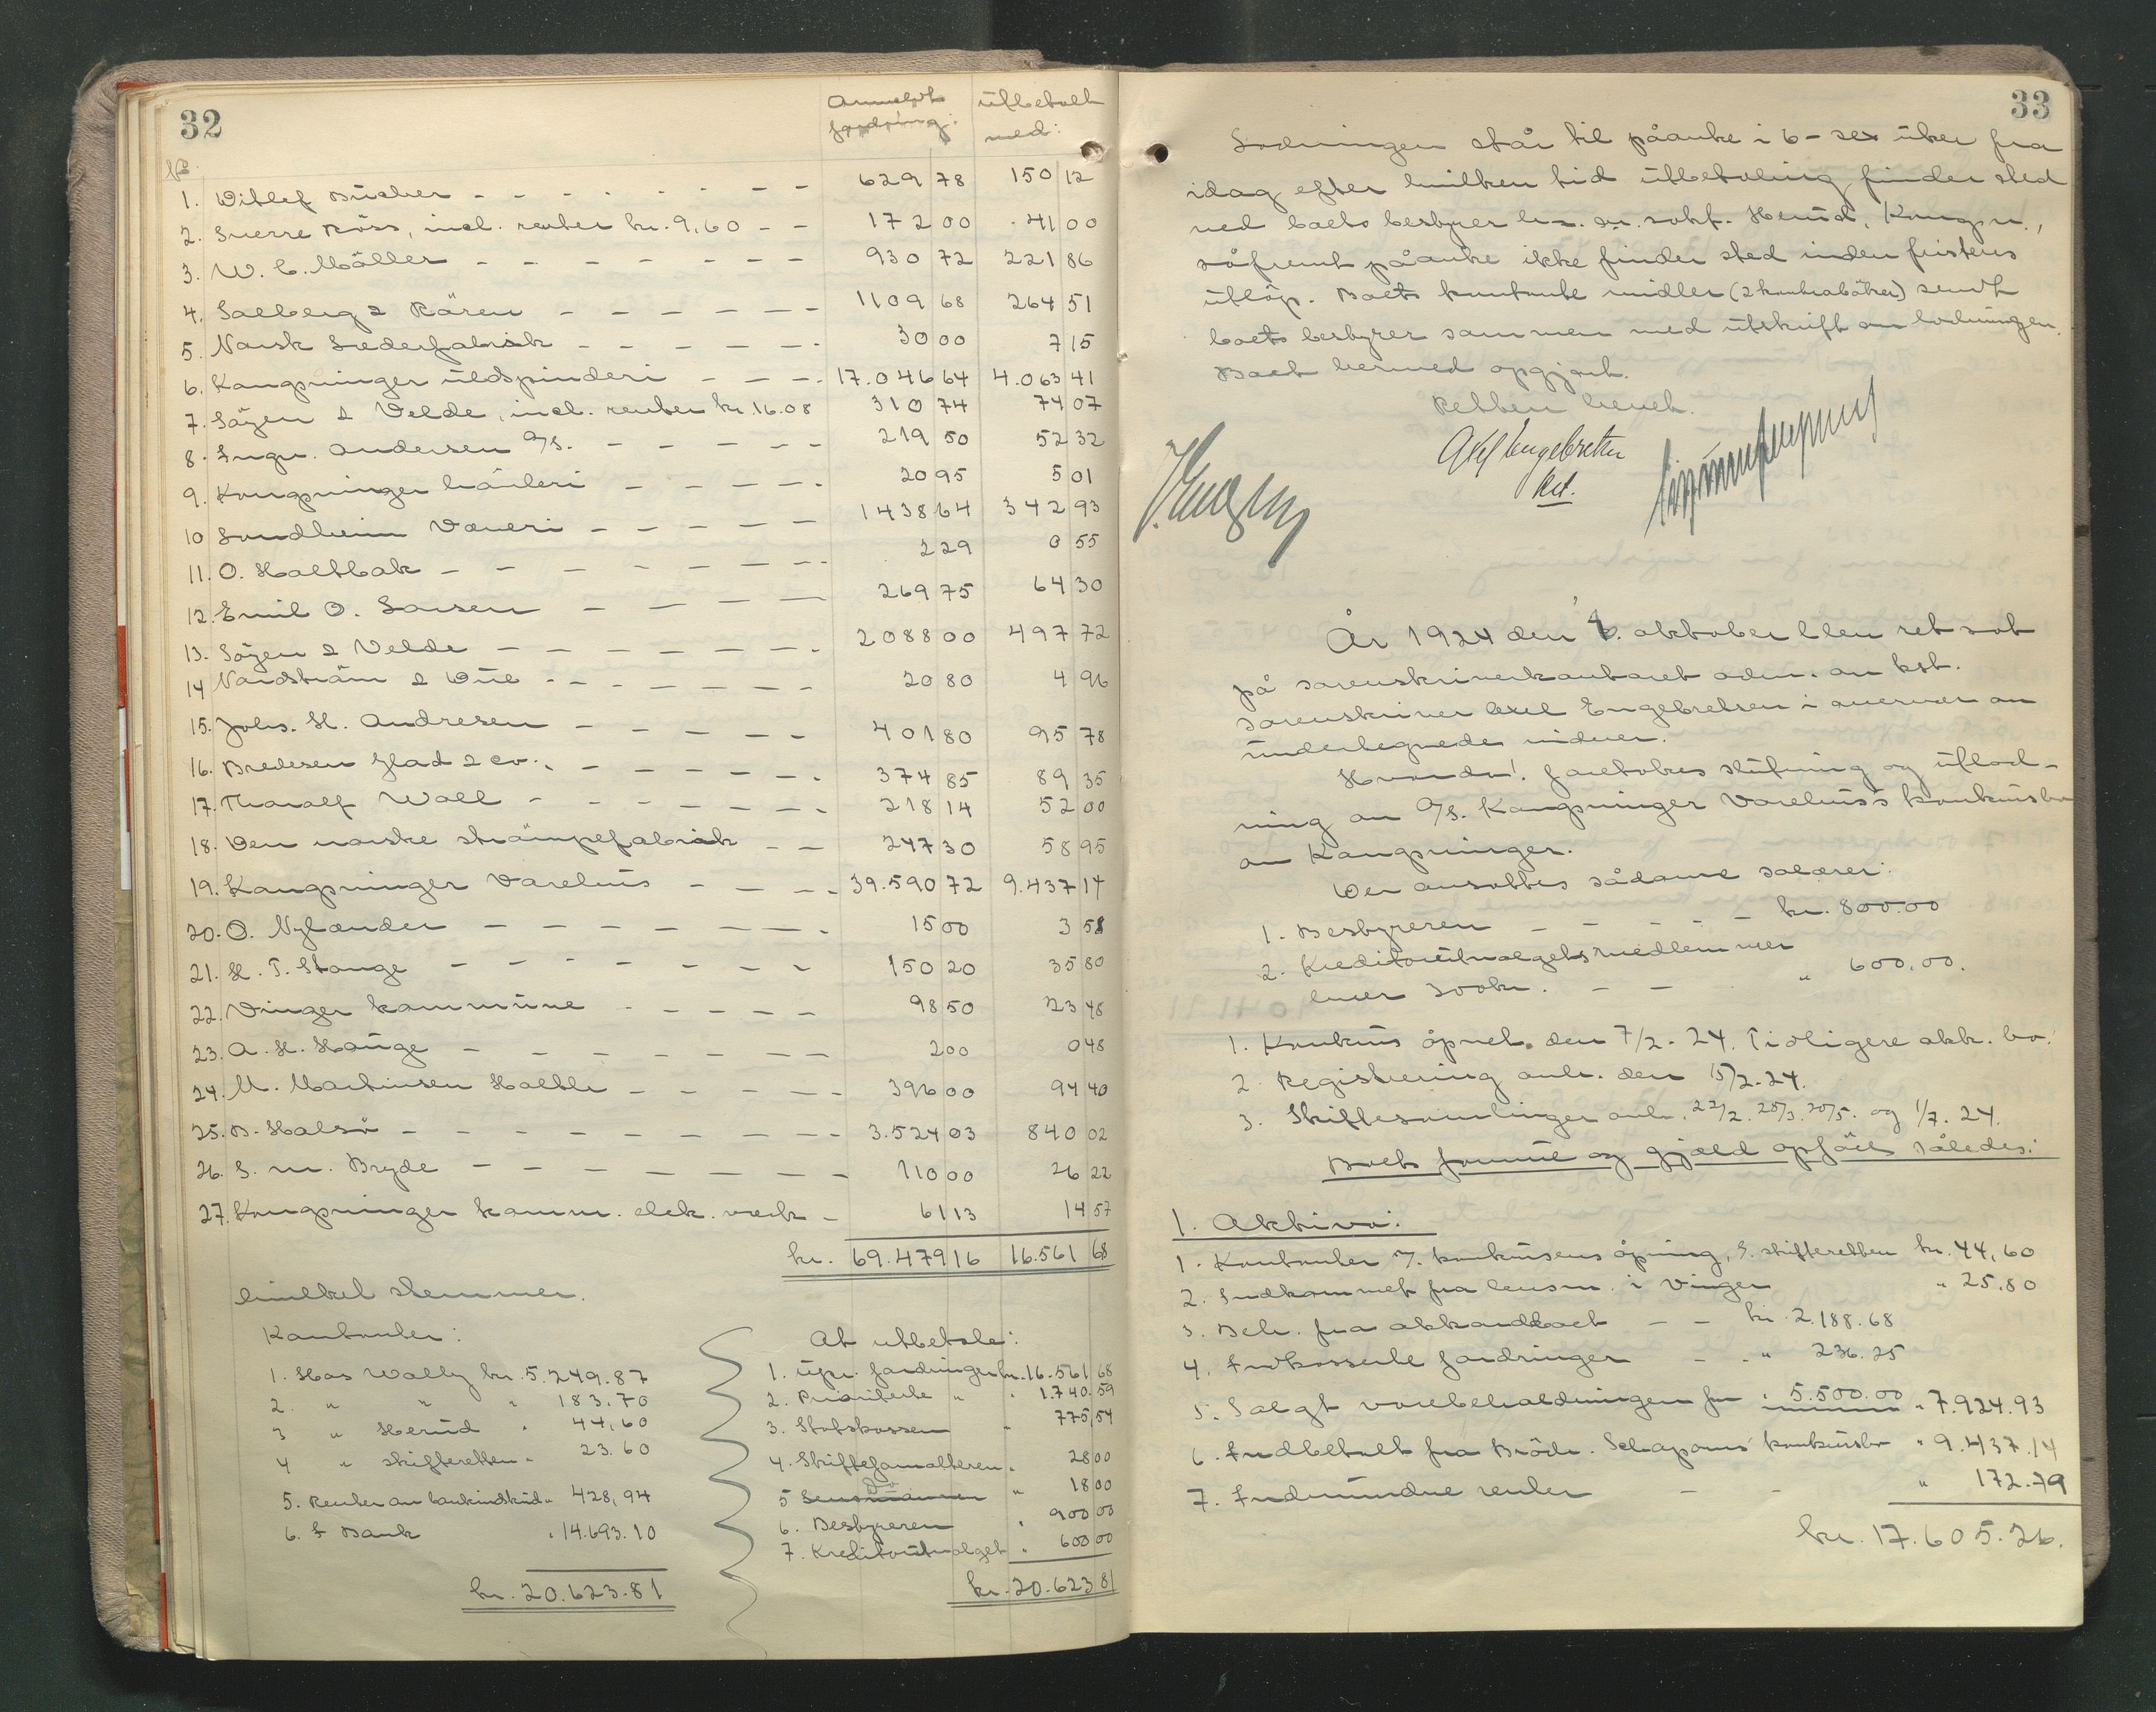 32
Anmeldt fordring: utbetalt med:
No
1. Ditlef Bücher - - - - - - - - 629 78 150 12
2. Sverre Röss, incl. renter kr. 9,60 - - 172 00 41 00
3. W. C. Möller - - - - - - - - 930 72 221 86
4. Salberg & Rären - - - - - - 1109 68 264 51
5. Norsk Lederfabrik - - - - - - 30 00 7 15
6. Kongsvinger uldspinderi - - - - 17.046 64 4.063 41
7. Söyen & Velde, incl. renter kr. 16.08 310 74 74 07
8. Ingv. Andersen A/S. - - - - - 219 50 52 32
9. Kongsvinger håvleri - - - - - 20 95 5 01
10 Sandheim Væveri - - - - - - 1438 64 342 93
11. O. Holtbak - - - - - - - - 2 29 0 55
12. Emil O. Larsen - - - - 269 75 64 30
13. Söyen & Velde - - - - - - - 2088 00 497 72
14 Nordström & Due - - - - - - - 20 80 4 96
15. Johs. H. Andresen - - - - - 401 80 95 78
16. Bredesen Glad & co. - - - - - - 374 85 89 35
17. Thoralf Wall - - - - - - - 218 14 52 00
18. Den norske strömpefabrik - - 247 30 58 95
19. Kongsvinger Varehus - - - - 39.590 72 9.437 14
20. O. Nylænder - - - - - - - - 15 00 3 58
21. H. T. Stange - - - - - - - - 150 20 35 80
22. Vinger kommune - - - - - 98 50 23 48
23. A. H. Hauge - - - - - - - 2 00 0 48
24. M. Martinsen Holthe - - - - - 396 00 94 40
25. B. Halsö - - - - - - - - - 3.524 03 840 02
26. S. m. Bryde - - - - - - - 110 00 26 22
27. Kongsvinger komm. elek. verk - 61 13 14 57
kr. 69.479 16 16.561 68
hvilket stemmer.
Kontanter:
1. Hos Wally kr. 5.249.87
2. " " " 183.70
3 " Herud " 44,60
4 " skifteretten " 23.60
5. Renter av bankindskud " 428,94
6. I Bank " 14.693.10
kr. 20.623.81
At utbetale:
1. Upr. fordringer kr. 16.561 68
2. Prioriterte " " 1.740.59
3. Statskassen " 775,54
4. Skifteforvalteren " 28 00
5 Do " 18 00
6. Bestyreren " 900 00
7. Kreditorutvalget " 600 00
kr. 20.623 81
33
Lodningen står til påanke i 6 - sex uker fra
idag efter hvilken tid utbetaling finder sted
ved boets bestyrer hr. o.r. sakf. Herud, Kongsv.,
såfremt påanke ikke finder sted inden fristens
utløp. Boets kontante midler (2 kontrabøker) sendt
boets bestyrer sammen med utskrift av lodningen.
Boet hermed opgjort.
Retten hevet.
Axel Engebretsen
kst.
År 1924 den 6. oktober blev ret sat
på sorenskriverkontoret adm. av kst.
sorenskriver Axel Engebretsen i overvær av
undertegnede vidner.
Hvorda! foretokes slutning og utlod-
ning av A/S. Kongsvinger Varehus's konkursbo
av Kongsvinger.
Der ansattes sådanne salærer:
1. Bestyreren - - - - - kr. 800.00
2. Kreditorutvalgets medlemmer
hver 300 kr. - - " 600.00.
1. Konkurs åpnet den 7/2-24. Tidligere akk. bo.
2. Registrering avh. den 15/2-24.
3. Skiftesamlinger avh. 22/2. 28/3. 20/5. og 1/7. 24.
Boets formue og gjæld opføres således:
1. Aktiva:
1. Kontanter v. konkursens åpning, i skifteretten kr. 44,60
2. Indkommet fra lensm. i Vinger " 25.80
3. Beh. fra akkordboet - - kr. 2.188.68
4. Indkasserte fordringer - - " 236.25
5. Solgt varebeholdningen for " 5.500.00 " 7.924.93
6. Indbetalt fra Brödr. Schapows konkursbo " 9.437.14
7. Indvundne renter - - " 172.79
kr. 17.605.26.